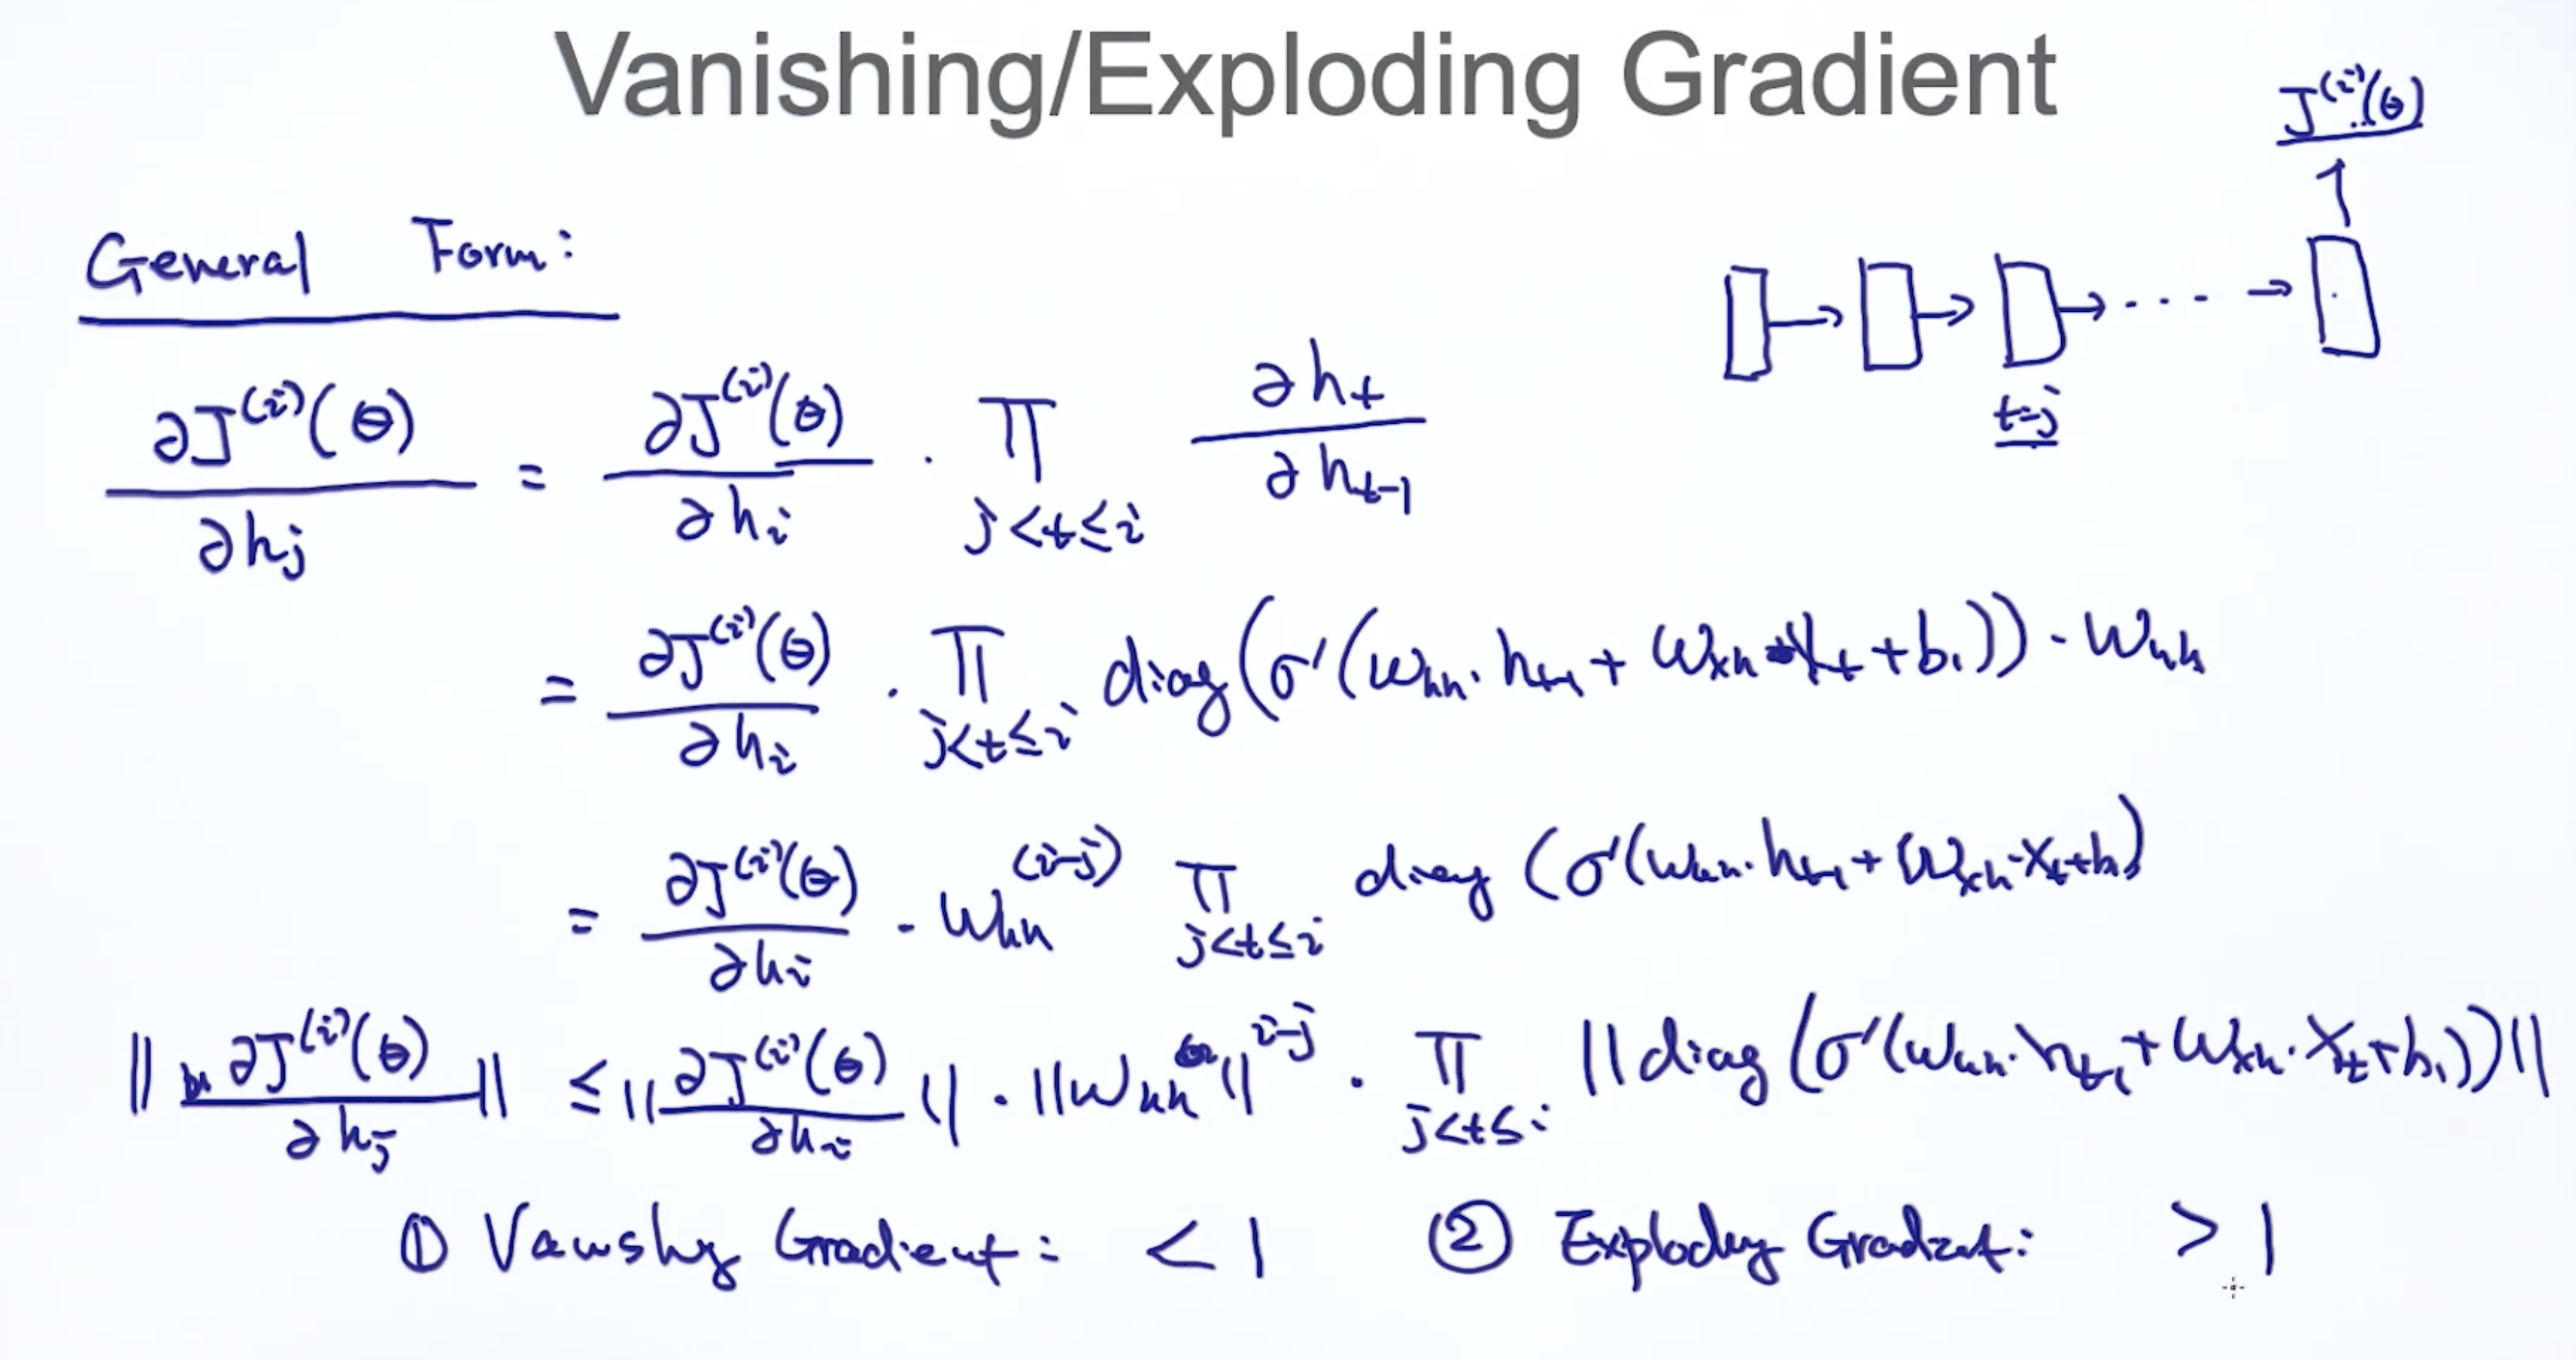 Vanishing/Exploding Gradient
J^(i)(θ)
General Form:
t=j
∂J^(i)(θ)/∂h_j = ∂J^(i)(θ)/∂h_i · ∏_{j<t≤i} ∂h_t/∂h_{t-1}
= ∂J^(i)(θ)/∂h_i · ∏_{j<t≤i} diag(σ'(W_hh · h_{t-1} + W_xh · X_t + b_1)) · W_hh
= ∂J^(i)(θ)/∂h_i · W_hh^(i-j) ∏_{j<t≤i} diag(σ'(W_hh · h_{t-1} + W_xh · X_t + b_1)
||∂J^(i)(θ)/∂h_j|| ≤ ||∂J^(i)(θ)/∂h_i|| · ||W_hh||^{i-j} · ∏_{j<t≤i} ||diag(σ'(W_hh · h_{t-1} + W_xh · X_t + b_1))||
① Vanishing Gradient: < 1 ② Exploding Gradient: > 1